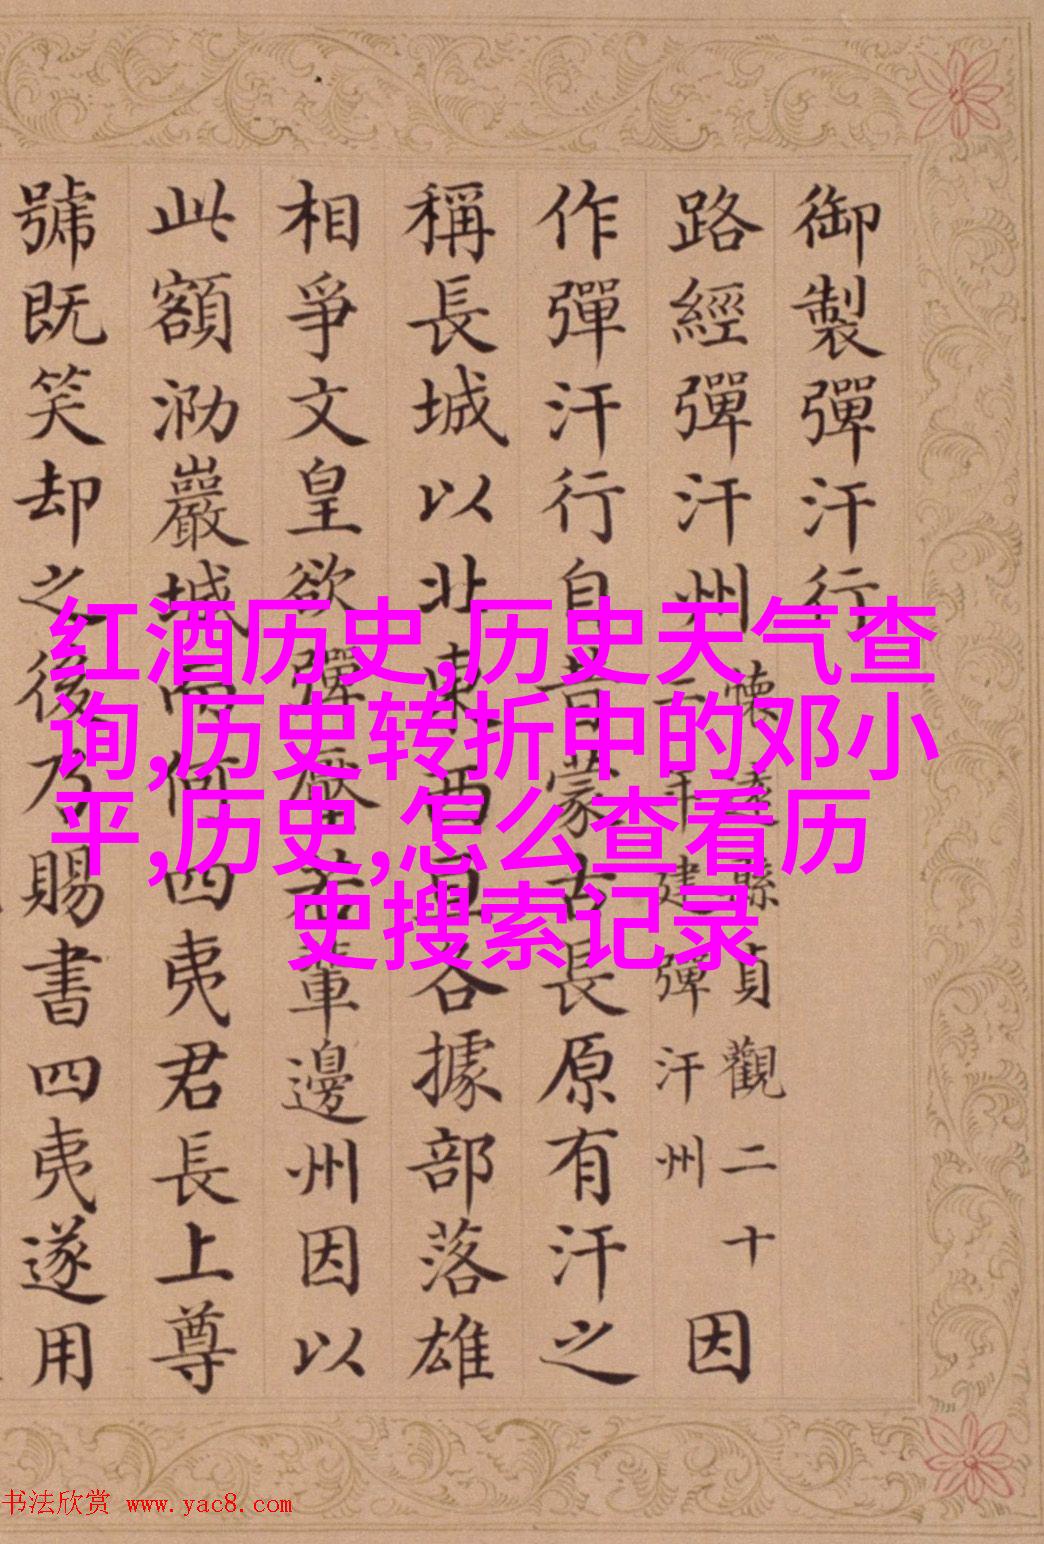 御製彈汗行
路經彈汗州
懷遠縣貞觀二十
三年建彈汗州
因
作彈汗行自昔蒙古長原有汗之
稱長城以北東西亘各據部落雄
相爭文皇欲彈壓若輩邊州因以
此額泐巖城何四夷君長上尊
號既笑却之後乃賜書四夷遂用
红酒历史,历史天气查
询,历史转折中的邓小
平,历史,怎么查看历
史搜索记录
书法欣赏 www.yac8.com